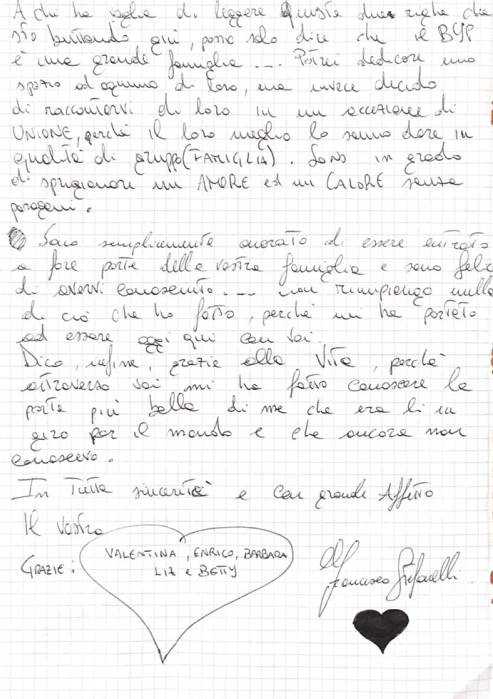 A chi ha voglia di leggere queste due righe che
sto buttando qui, posso solo dire che il BYP
è una grande famiglia .... Potrei dedicare uno
spazio ad ognuno di loro, ma invece decido
di raccontarvi di loro in un accezione di
UNIONE, perché il loro meglio lo sanno dare in
qualità di gruppo (FAMIGLIA). Sono in grado
di sprigionare un AMORE ed un CALORE senza
paragoni.
Sono semplicemente onorato di essere entrato
a fare parte della vostra famiglia e sono felice
di avervi conosciuto.... non rimpiango nulla
di ciò che ho fatto, perché mi ha portato
ad essere oggi qui con voi.
Dico, infine, grazie alla Vita, perché
attraverso voi mi ha fatto conoscere la
parte più bella di me che era lì in
giro per il mondo e che ancora non
conoscevo.
In Tutta sincerità e con grande Affetto
Il vostro
GRAZIE: VALENTINA, ENRICO, BARBARA
LIZ e BETTY
Francesco